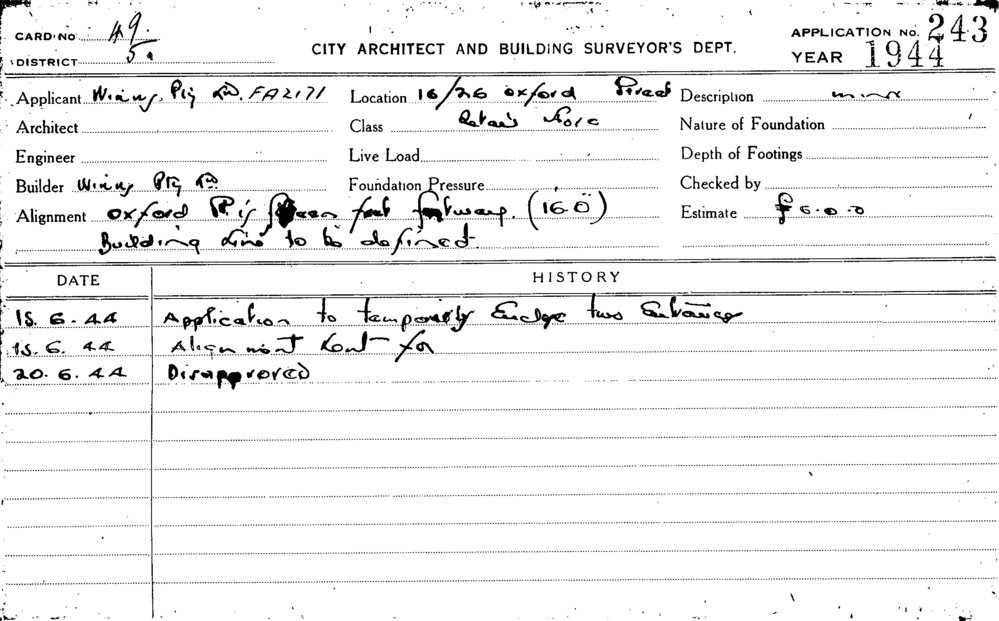 CARD NO 49/5a
DISTRICT
CITY ARCHITECT AND BUILDING SURVEYOR'S DEPT.
APPLICATION NO. 243
YEAR 1944
Applicant Winns Pty Ltd. FA2171 Location 16/26 Oxford Street Description minor
Architect Class Retail Store Nature of Foundation
Engineer Live Load Depth of Footings
Builder Winns Pty Ltd. Foundation Pressure Checked by
Alignment Oxford St. is feet footway. (16.0) Estimate £6.0.0
Building Line to be defined.
DATE HISTORY
15.6.44 Application to temporarily Enclose two Entrances
15.6.44 Alignment sent for
20.6.44 Disapproved